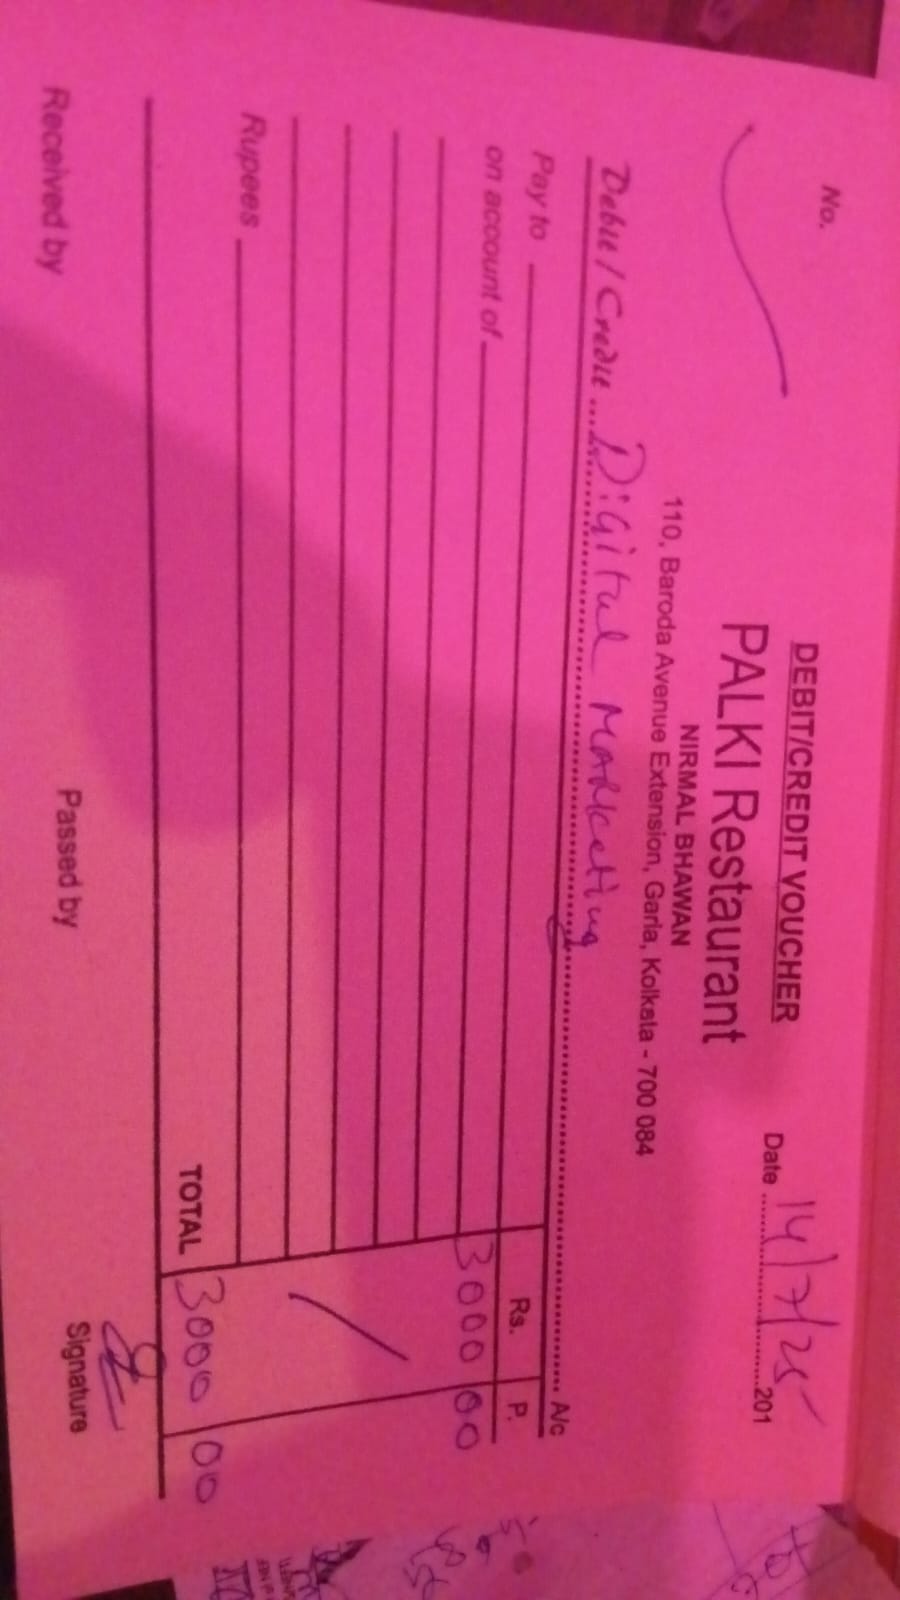 DEBIT/CREDIT VOUCHER
No.
Date 14/7/25 201
PALKI Restaurant
NIRMAL BHAWAN
110, Baroda Avenue Extension, Garia, Kolkata - 700 084
Debit / Credit Digital Marketing A/c
Pay to
Rs. P.
on account of 3000 00
Rupees
TOTAL 3000 00
Received by Passed by Signature